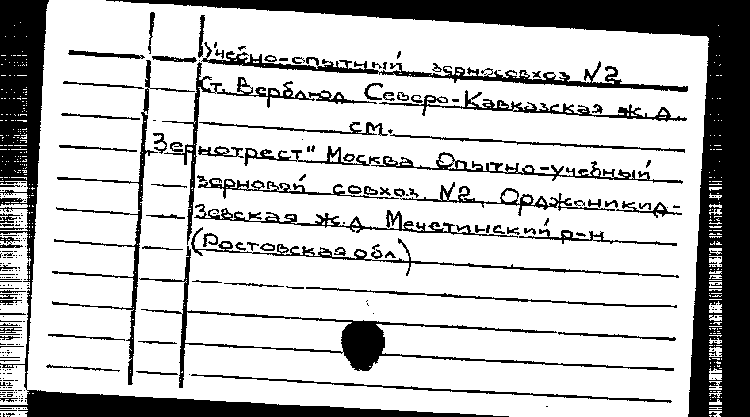 Учебно-опытный зерносовхоз №2
Ст. Верблюд Северо-Кавказская ж.д.
см.
Зернотрест" Москва. Опытно-учебный
зерновой совхоз №2, Орджоникид-
зевская ж.д. Мечетинский р-н
(Ростовская обл.)